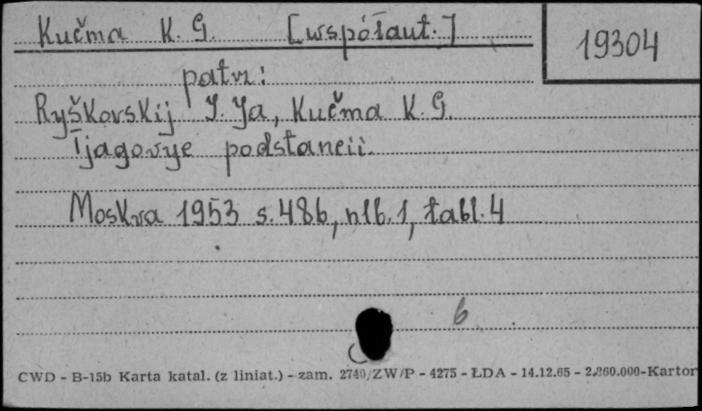 Kučma K. G. [współaut.]
19304
patrz:
Ryškovskij I. Ja, Kučma K. G.
Tjagovye podstancii.
Moskva 1953 s. 486, nlb. 1, tabl. 4
6
CWD - B-15b Karta katal. (z liniat.) - zam. 2740/ZW/P - 4275 - ŁDA - 14.12.65 - 2.860.000 - Karton